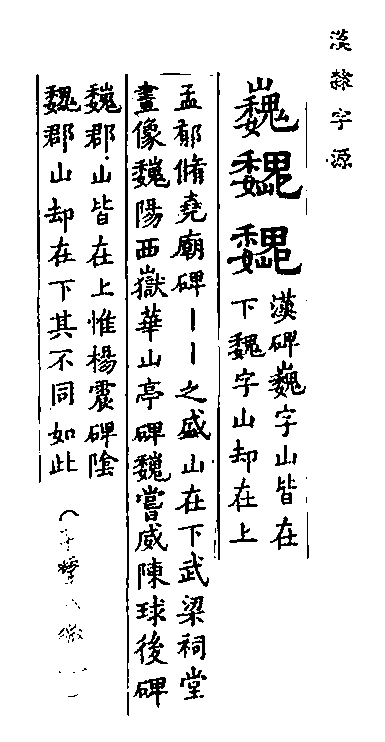 漢隸字源
巍巍巍
漢碑巍字山皆在
下魏字山却在上
孟郁脩堯廟碑丨丨之盛山在下武梁祠堂
畫像魏陽西嶽華山亭碑魏嘗威陳球後碑
巍郡山皆在上惟楊震碑陰
魏郡山却在下其不同如此